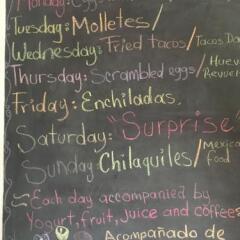 Monday: Eggs
Tuesday: Molletes/
Wednesday: Fried tacos/Tacos Do
Thursday: Scrambled eggs/Huev
Revuer
Friday: Enchiladas.
Saturday: "Surprise"
Sunday: Chilaquiles/Mexica
Food
Each day accompanied by
Yogurt, fruit, juice and coffee
Acompañado de